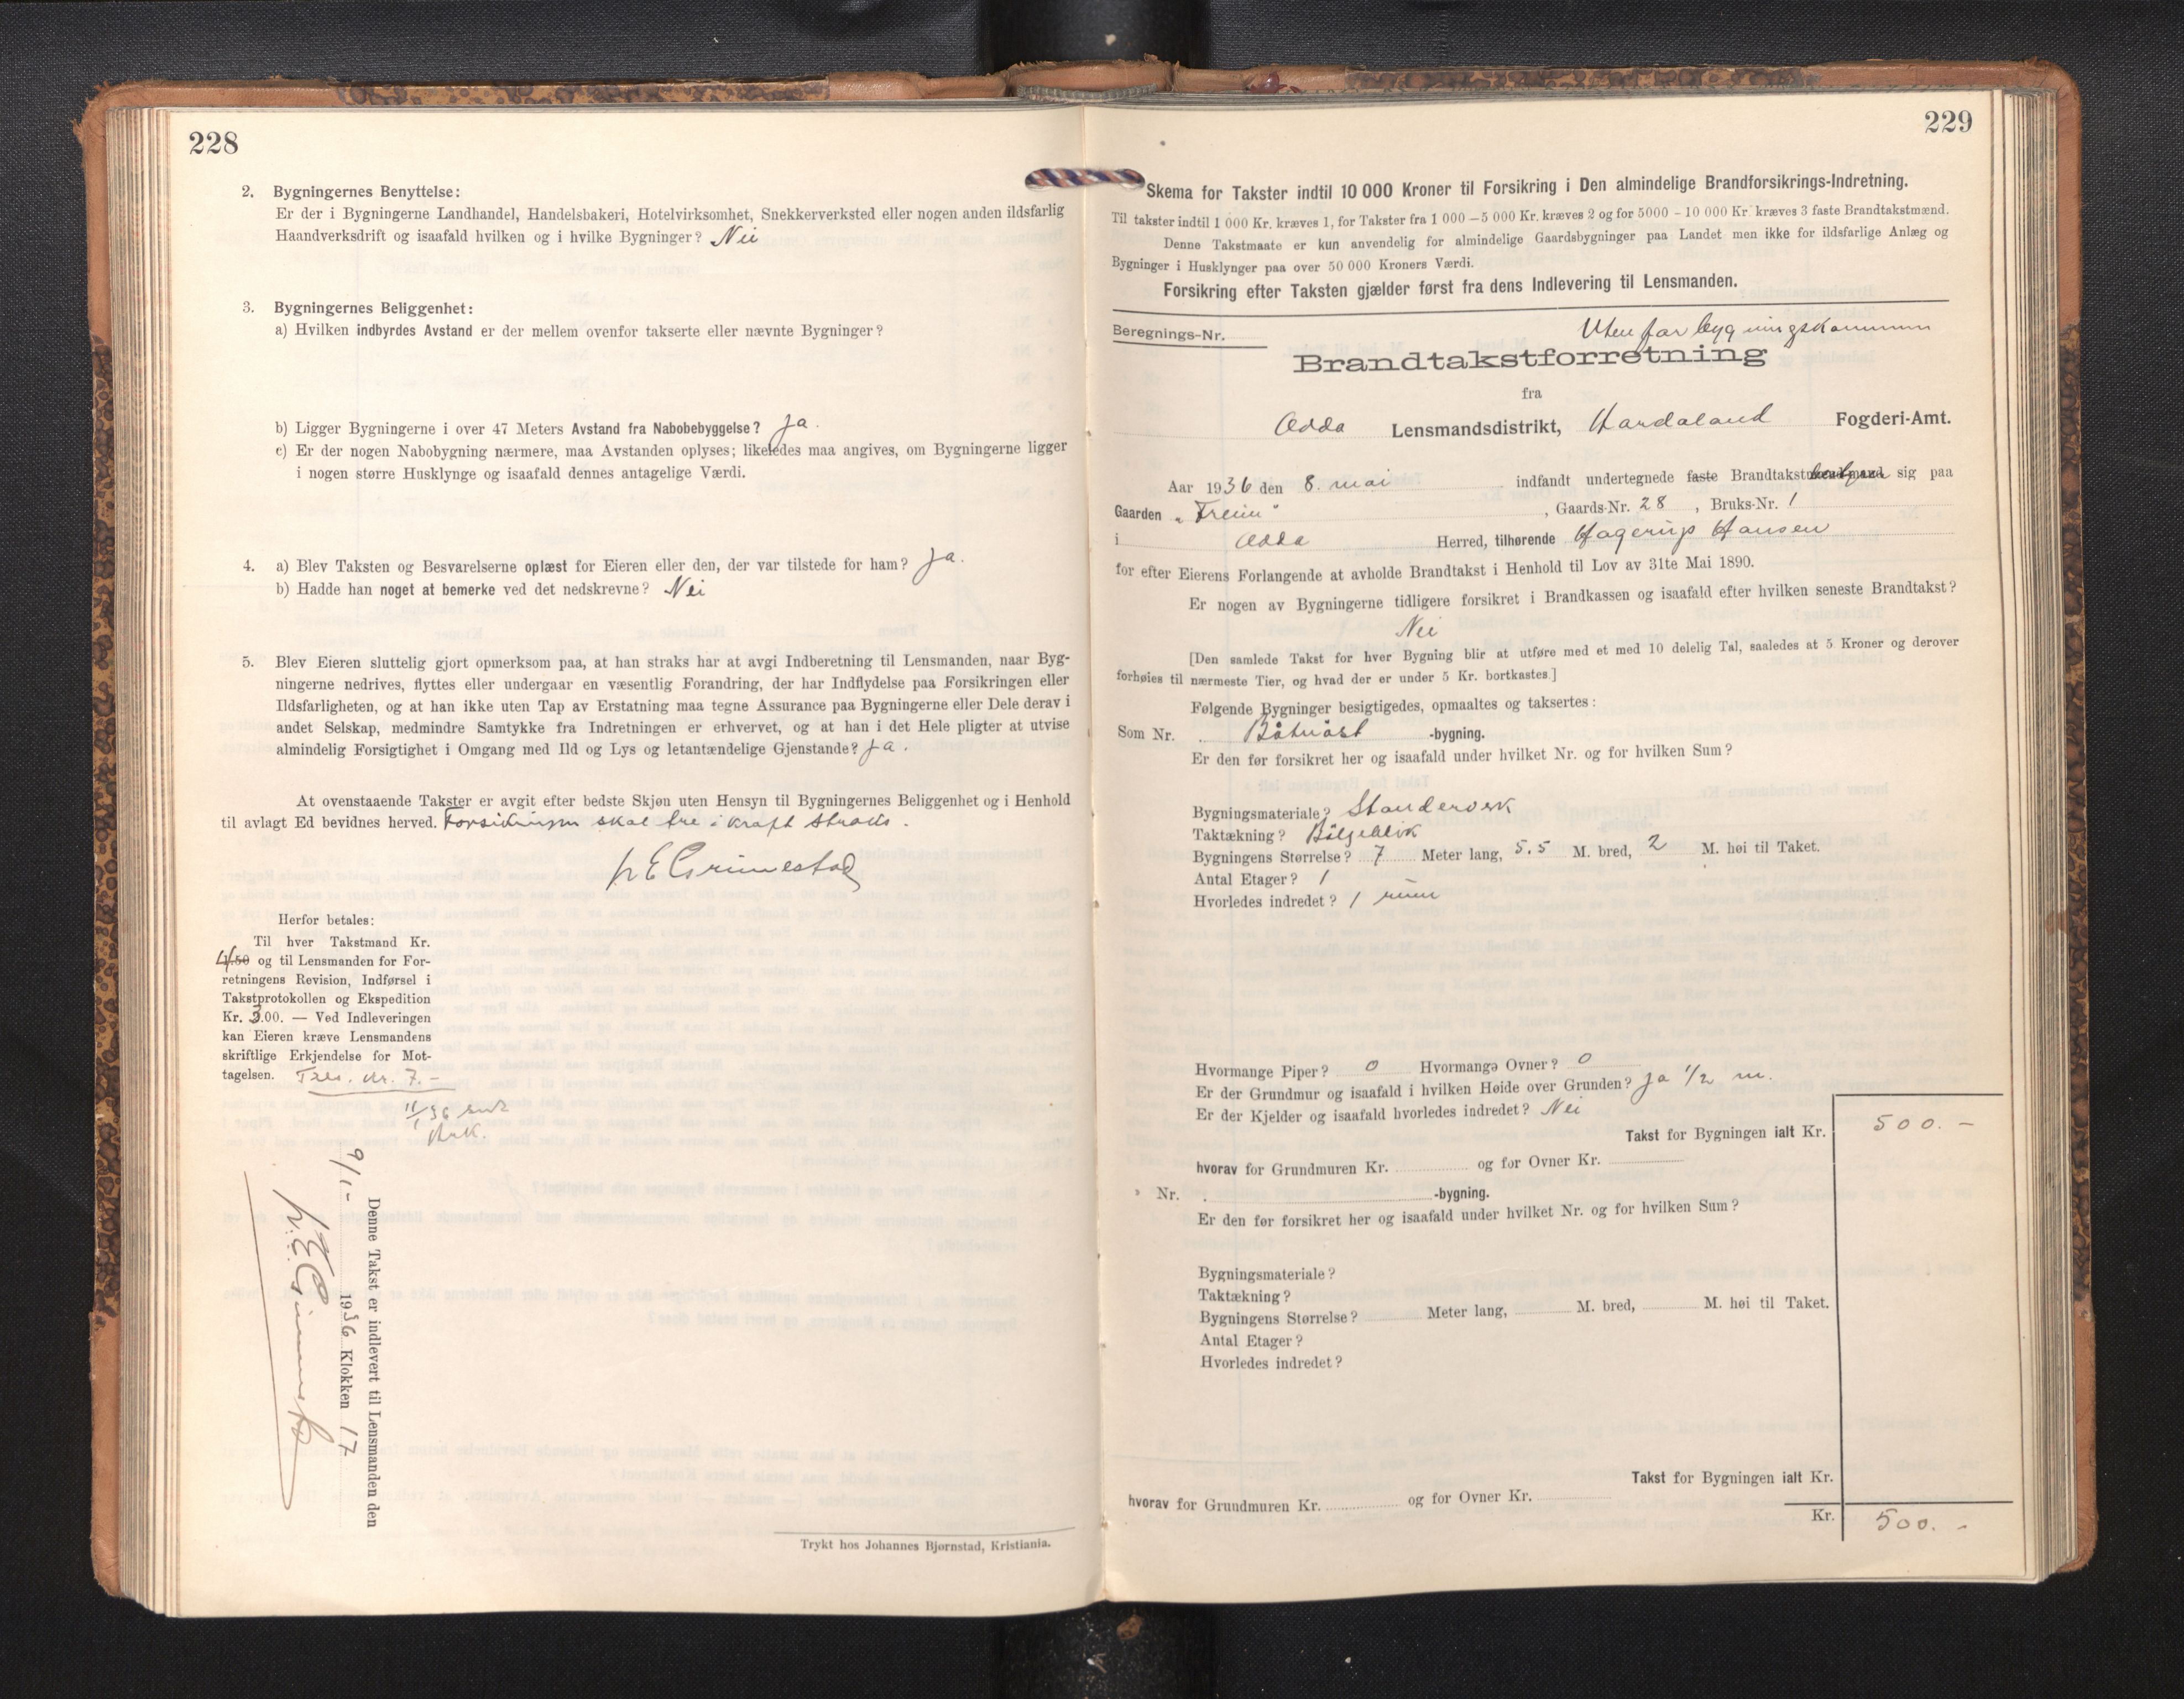 228
2. Bygningernes Benyttelse:
Er der i Bygningerne Landhandel, Handelsbakeri, Hotelvirksomhet, Snekkerverksted eller nogen anden ildsfarlig
Haandverksdrift og isaafald hvilken og i hvilke Bygninger? Nei
3. Bygningernes Beliggenhet:
a) Hvilken indbyrdes Avstand er der mellem ovenfor takserte eller nævnte Bygninger?
b) Ligger Bygningerne i over 47 Meters Avstand fra Nabobebyggelse? Ja.
c) Er der nogen Nabobygning nærmere, maa Avstanden oplyses; likeledes maa angives, om Bygningerne ligger
i nogen større Husklynge og isaafald dennes antagelige Værdi.
4. a) Blev Taksten og Besvarelserne oplæst for Eieren eller den, der var tilstede for ham? Ja.
b) Hadde han noget at bemerke ved det nedskrevne? Nei
5. Blev Eieren sluttelig gjort opmerksom paa, at han straks har at avgi Indberetning til Lensmanden, naar Byg-
ningerne nedrives, flyttes eller undergaar en væsentlig Forandring, der har Indflydelse paa Forsikringen eller
Ildsfarligheten, og at han ikke uten Tap av Erstatning maa tegne Assurance paa Bygningerne eller Dele derav i
andet Selskap, medmindre Samtykke fra Indretningen er erhvervet, og at han i det Hele pligter at utvise
almindelig Forsigtighet i Omgang med Ild og Lys og letantændelige Gjenstande? Ja.
At ovenstaaende Takster er avgit efter bedste Skjøn uten Hensyn til Bygningernes Beliggenhet og i Henhold
til avlagt Ed bevidnes herved. Forsikringen skal tre i kraft straks.
E Grimestad
Herfor betales:
Til hver Takstmand Kr.
4 1.50 og til Lensmanden for For-
retningens Revision, Indførsel i
Takstprotokollen og Ekspedition
Kr. 3.00. — Ved Indleveringen
kan Eieren kræve Lensmandens
skriftlige Erkjendelse for Mot-
tagelsen. Tils. kr. 7.-
Denne Takst er indlevert til Lensmanden den
9/1- 1936 Klokken 17
Trykt hos Johannes Bjørnstad, Kristiania.
229
Skema for Takster indtil 10 000 Kroner til Forsikring i Den almindelige Brandforsikrings-Indretning.
Til takster indtil 1 000 Kr. kræves 1, for Takster fra 1 000 – 5 000 Kr. kræves 2 og for 5000 – 10 000 Kr. kræves 3 faste Brandtakstmænd.
Denne Takstmaate er kun anvendelig for almindelige Gaardsbygninger paa Landet men ikke for ildsfarlige Anlæg og
Bygninger i Husklynger paa over 50 000 Kroners Værdi.
Forsikring efter Taksten gjælder først fra dens Indlevering til Lensmanden.
Beregnings-Nr. Utenfor bygningskommun
Brandtakstforretning
fra
Odda Lensmandsdistrikt, Hordaland Fogderi-Amt.
Aar 1936 den 8. mai indfandt undertegnede faste Brandtakst sig paa
Gaarden „Freim“, Gaards-Nr. 28, Bruks-Nr. 1
i Odda Herred, tilhørende Hagerup Hansen
for efter Eierens Forlangende at avholde Brandtakst i Henhold til Lov av 31te Mai 1890.
Er nogen av Bygningerne tidligere forsikret i Brandkassen og isaafald efter hvilken seneste Brandtakst?
Nei
[Den samlede Takst for hver Bygning blir at utføre med et med 10 delelig Tal, saaledes at 5 Kroner og derover
forhøies til nærmeste Tier, og hvad der er under 5 Kr. bortkastes.]
Følgende Bygninger besigtigedes, opmaaltes og taksertes:
Som Nr. Båtnaust -bygning.
Er den før forsikret her og isaafald under hvilket Nr. og for hvilken Sum?
Bygningsmateriale? Standerverk
Taktækning? Bølgeblikk
Bygningens Størrelse? 7 Meter lang, 5.5 M. bred, 2 M. høi til Taket.
Antal Etager? 1
Hvorledes indredet? 1 rum
Hvormange Piper? 0 Hvormange Ovner? 0
Er der Grundmur og isaafald i hvilken Høide over Grunden? Ja 1/2 m.
Er der Kjelder og isaafald hvorledes indredet? Nei
Takst for Bygningen ialt Kr. 500.-
hvorav for Grundmuren Kr. og for Ovner Kr.
» Nr. -bygning.
Er den før forsikret her og isaafald under hvilket Nr. og for hvilken Sum?
Bygningsmateriale?
Taktækning?
Bygningens Størrelse? Meter lang, M. bred, M. høi til Taket.
Antal Etager?
Hvorledes indredet?
Takst for Bygningen ialt Kr.
hvorav for Grundmuren Kr. og for Ovner Kr.
Kr. 500.-